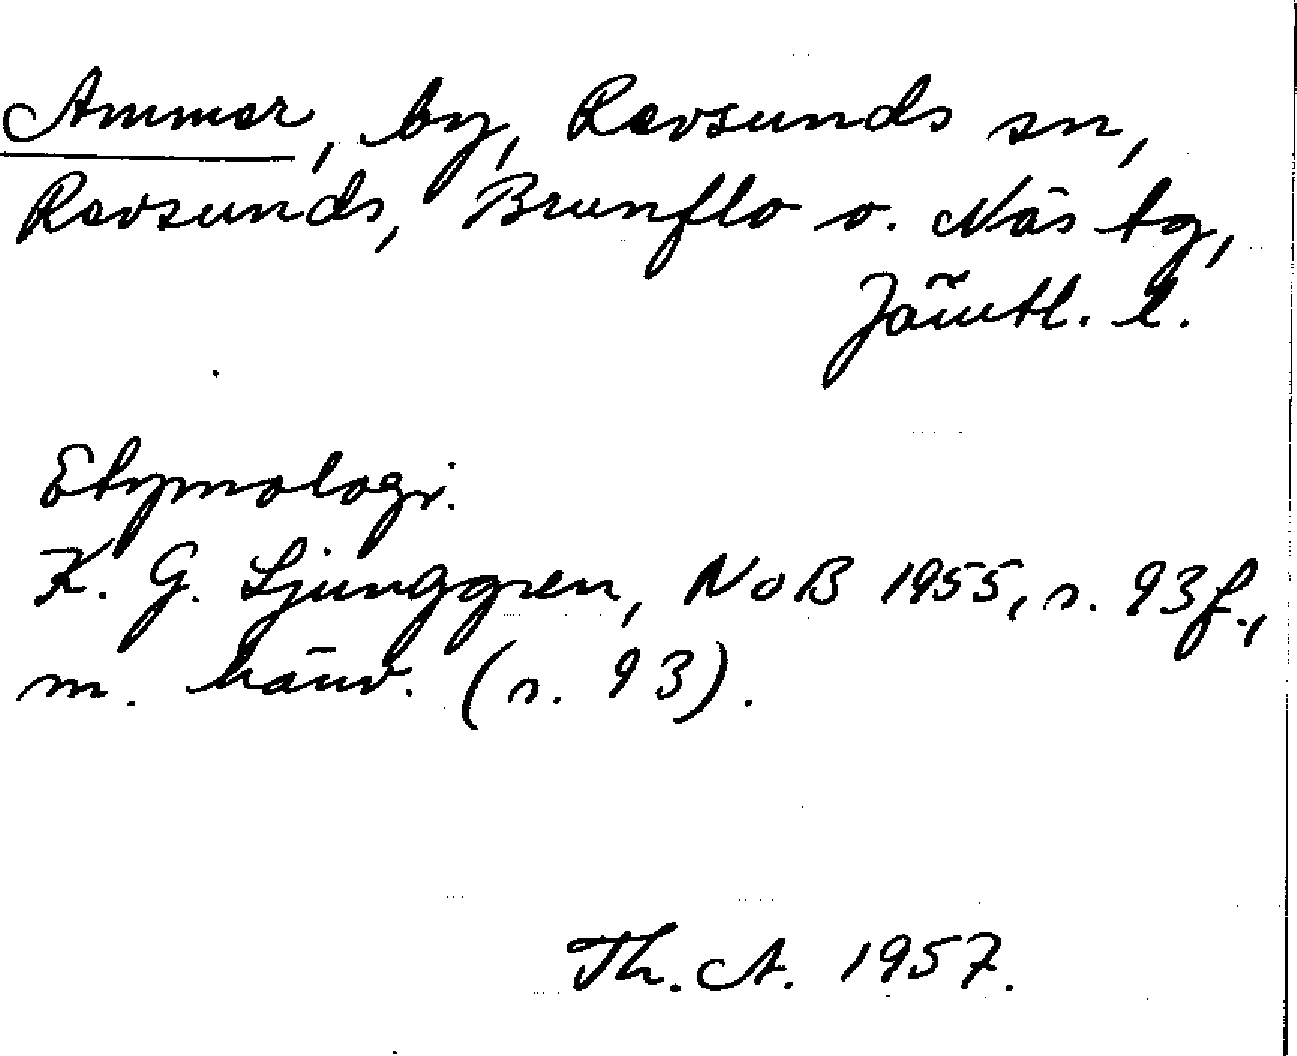 Ammer, by, Revsunds sn,
Revsunds, Brunflo o. Näs tg,
Jämtl. l.
Etymologi:
K. G. Ljunggren, NoB 1955, s. 93 f.,
m. hänv. (s. 93).
Th. A. 1957.